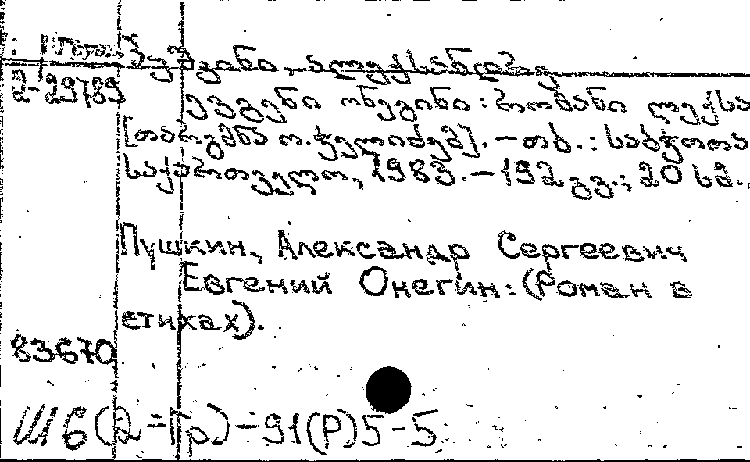 პუშკინი, ალექსანდრე
2-29789
ევგენი ონეგინი: რომანი ლექსა
[თარგმნა ო. ჭელიძემ]. – თბ.: საბჭოთა
საქართველო, 1983. – 192 გვ.; 20 სმ.
Пушкин, Александр Сергеевич
Евгений Онегин: (Роман в
стихах).
83670
Ш6(2=Гр)-91(Р)5-5